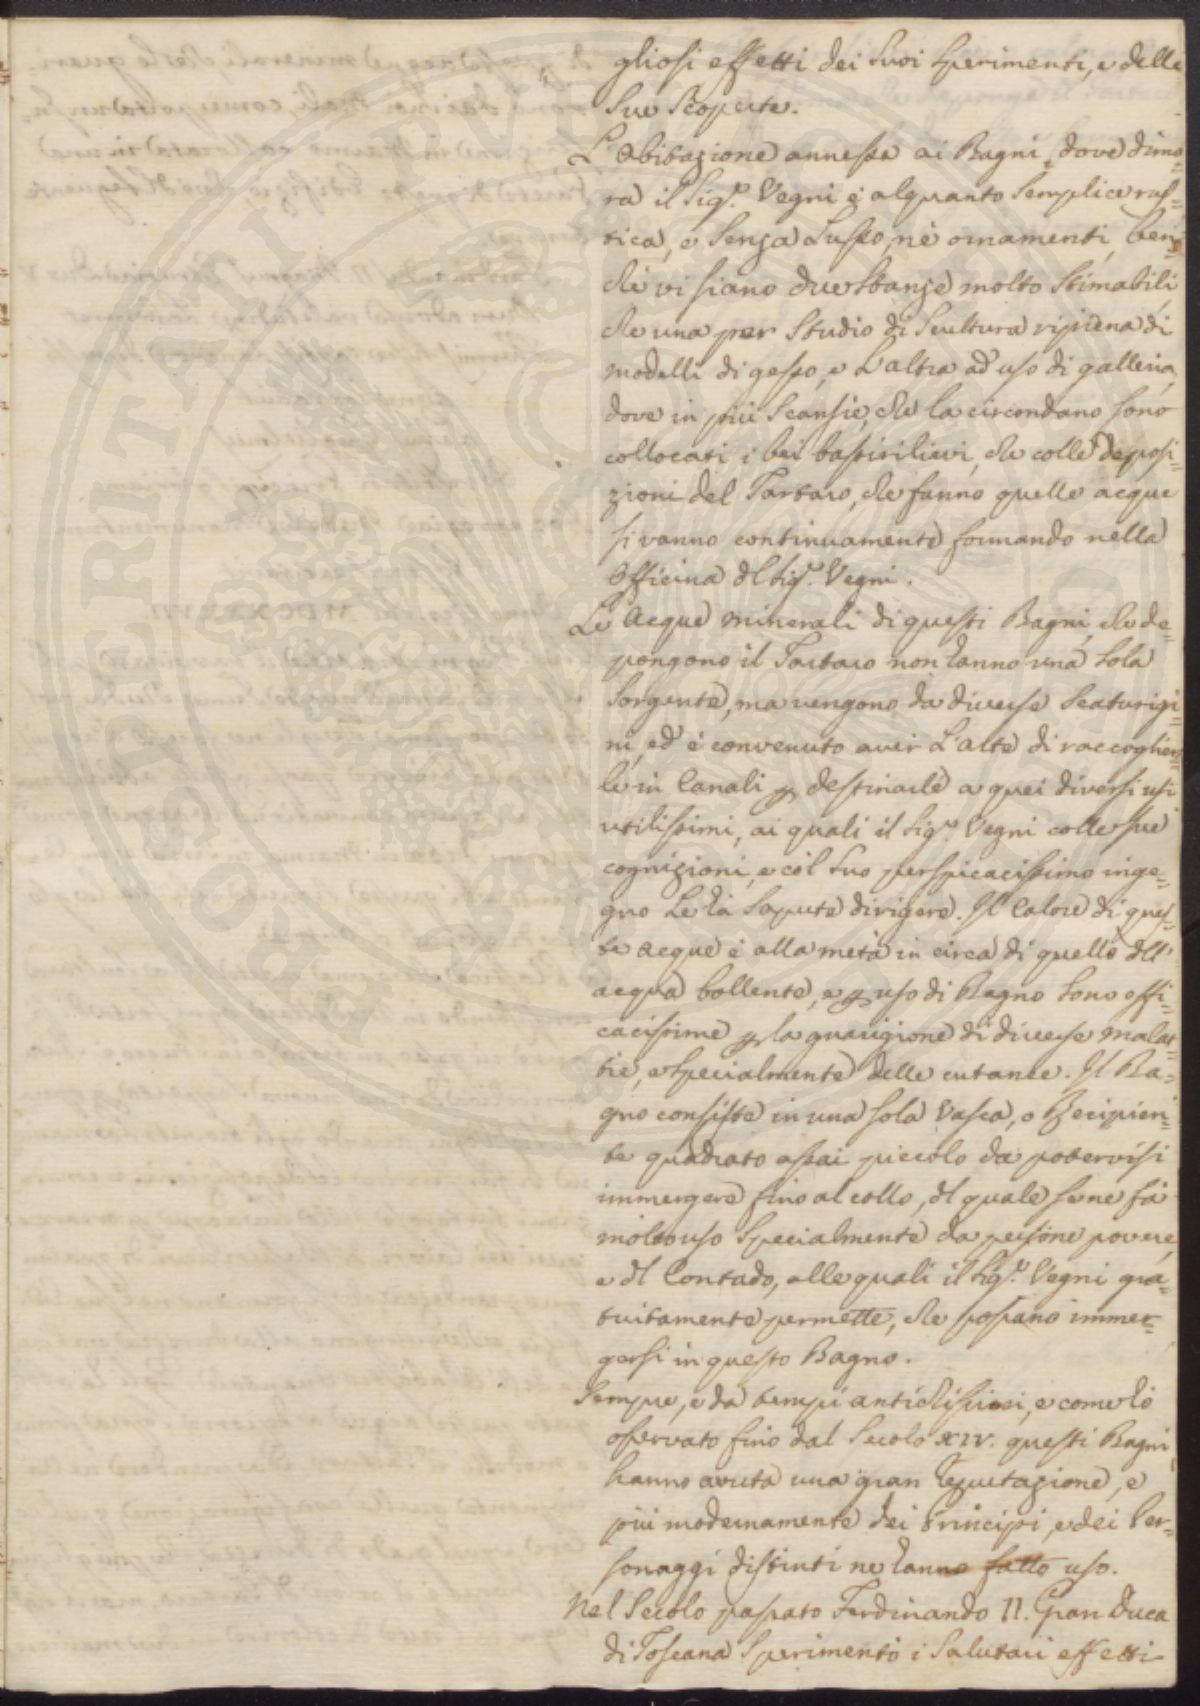 gliosi effetti dei suoi sperimenti, e delle
sue scoperte.
L'abitazione annessa ai Bagni, dove dimo=
ra il Sig.r Vegni è alquanto semplice rus=
tica, e senza Lusso, nè ornamenti, ben=
chè vi siano due stanze molto stimabili,
che una per Studio di Scultura ripiena di
modelli di gesso, e l'altra ad uso di galleria,
dove in più Scansie, che la circondano sono
collocati i bei bassirilievi, che colle deposi=
zioni del Tartaro, che fanno quelle acque
si vanno continuamente formando nella
Officina dl Sig.r Vegni.
Le Acque minerali di questi Bagni, che de=
pongono il Tartaro non hanno una sola
Sorgente, ma vengono da diverse Scaturigi=
ni, ed è convenuto aver l'arte di raccoglier=
le in Canali p destinarle a quei diversi usi
utilissimi, ai quali il Sig.r Vegni colle sue
cognizioni, e col suo perspicacissimo inge=
gno le hà sapute dirigere. Il Calore di ques=
te acque è alla metà in circa di quello dll'
acqua bollente, e p uso di Bagno sono effi=
cacissime p la guarigione di diverse malat=
tie, e specialmente delle cutanee. Il Ba=
gno consiste in una sola Vasca, o Recipien=
te quadrato assai piccolo da potervisi
immergere fino al collo, dl quale se ne fà
molto uso specialmente da persone povere,
e dl Contado, alle quali il Sig.r Vegni gra=
tuitamente permette, che possano immer=
gersi in questo Bagno.
Sempre, e da tempi antichissimi, e come hò
osservato fino dal Secolo XIV. questi Bagni
hanno avuta una gran reputazione, e
più modernamente dei Principi, e dei Per=
sonaggi distinti ne hanno fatto uso.
Nel Secolo passato Ferdinando II. Gran Duca
di Toscana sperimentò i salutari effetti